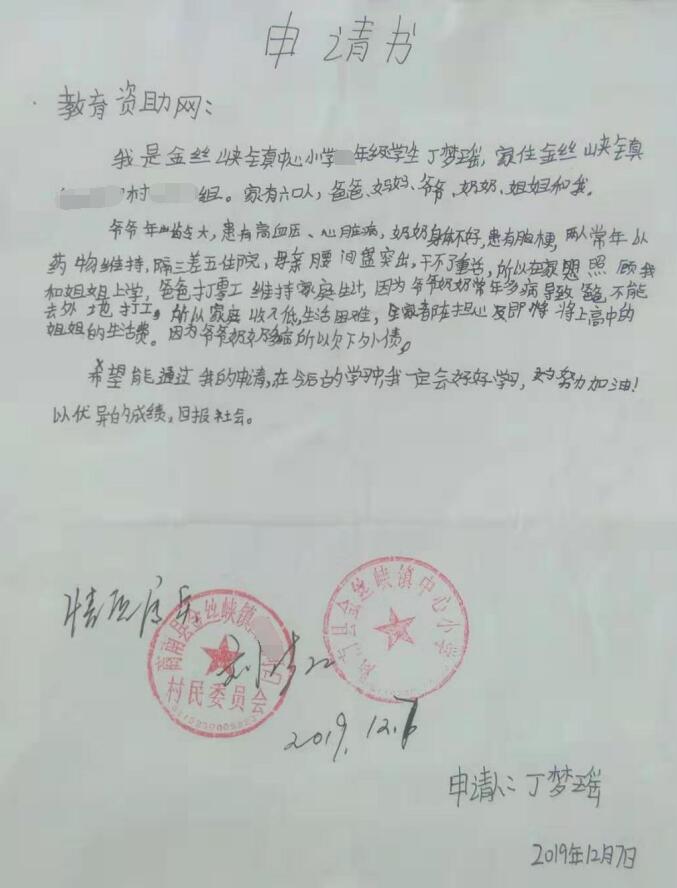 申请书
教育资助网：
我是金丝峡镇中心小学年级学生丁梦瑶，家住金丝峡镇
村组。家有六口人，爸爸、妈妈、爷爷、奶奶、姐姐和我。
爷爷年龄大，患有高血压、心脏病，奶奶身体不好，患有脑梗，两人常年以
药物维持，隔三差五住院，母亲腰间盘突出，干不了重活，所以在家照顾我
和姐姐上学，爸爸打零工维持家庭生计，因为爷爷奶奶常年多病导致爸爸不能
去外地打工，所以家庭收入低，生活困难，全家都在担心及即将将上高中的
姐姐的生活费。因为爷爷奶奶多病所以欠下外债。
希望能通过我的申请，在今后的学习中，我一定会好好学习，努力加油！
以优异的成绩，回报社会。
情况属实
商南县金丝峡镇
村民委员会
县金丝峡镇中心小学
2019.12.7
申请人：丁梦瑶
2019年12月7日